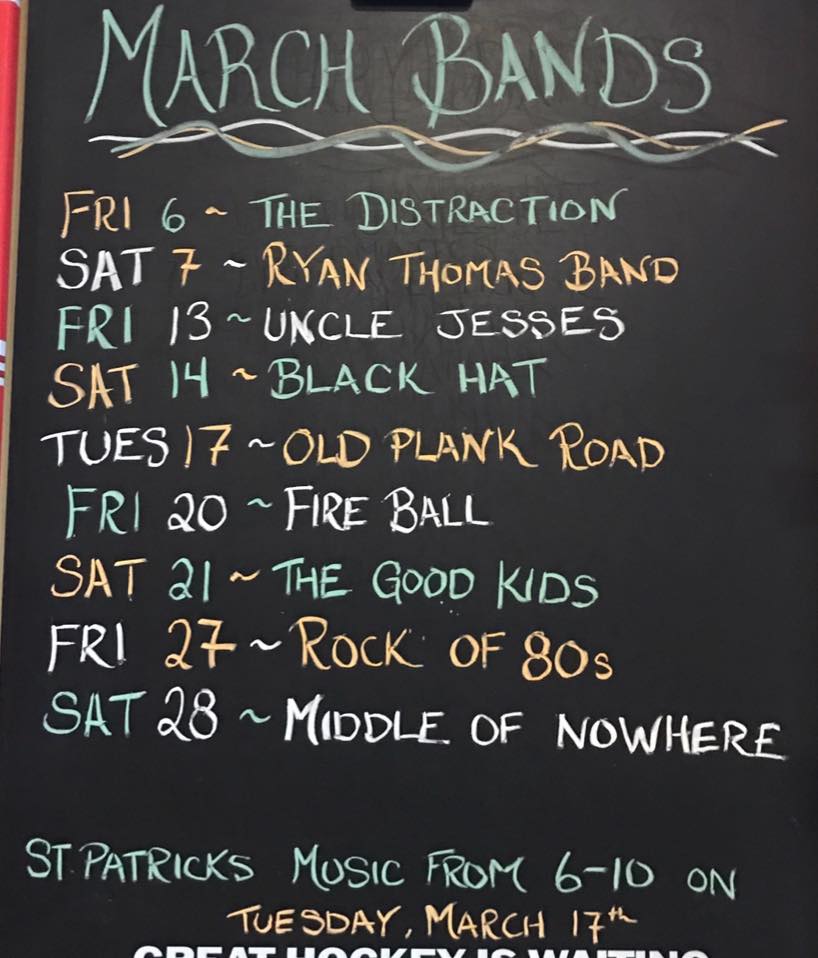 MARCH BANDS
FRI 6 ~ THE DISTRACTION
SAT 7 ~ RYAN THOMAS BAND
FRI 13 ~ UNCLE JESSES
SAT 14 ~ BLACK HAT
TUES 17 ~ OLD PLANK ROAD
FRI 20 ~ FIRE BALL
SAT 21 ~ THE GOOD KIDS
FRI 27 ~ ROCK OF 80s
SAT 28 ~ MIDDLE OF NOWHERE
ST. PATRICKS MUSIC FROM 6-10 ON
TUESDAY, MARCH 17th
GREAT HOCKEY IS WAITING